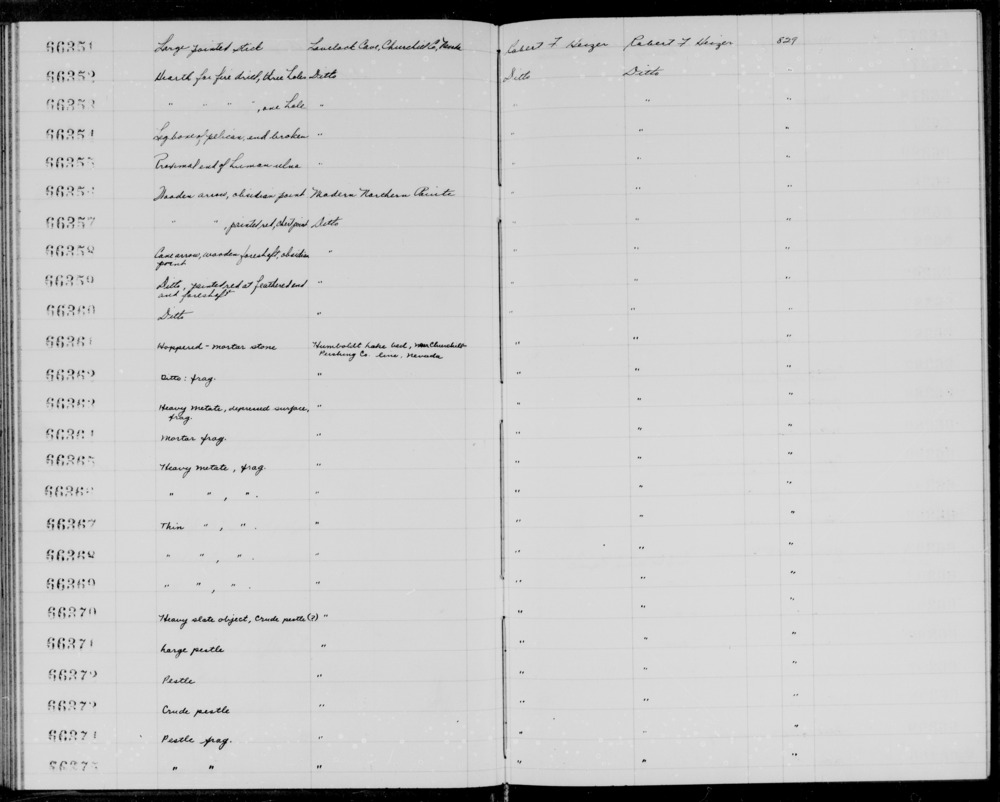 66351 Large pointed stick Lovelock Cave, Churchill Co, Nevada Robert F Heizer Robert F Heizer 529
66352 Hearth for fire drill, three holes Ditto Ditto Ditto "
66353 " " " ", one hole " " " "
66354 Leg bone of pelican, end broken " " " "
66355 Proximal end of human ulna " " " "
66356 Wooden arrow, obsidian point Modern Northern Paiute " " "
66357 " ", painted red, Ditto " " "
66358 Cane arrow, wooden foreshaft, obsidian " " " "
point
66359 Ditto, painted red at feathered end " " " "
and foreshaft
66360 Ditto " " " "
66361 Hoppered-mortar stone Humboldt Lake bed, near Churchill- " " "
Pershing Co. line, Nevada
66362 Ditto: frag. " " " "
66363 Heavy metate, depressed surface, " " " "
frag.
66364 Mortar frag. " " " "
66365 Heavy metate, frag. " " " "
66366 " ", ". " " " "
66367 Thin ", ". " " " "
66368 " ", ". " " " "
66369 " ", ". " " " "
66370 Heavy slate object, crude pestle (?) " " " "
66371 Large pestle " " " "
66372 Pestle " " " "
66373 Crude pestle " " " "
66374 Pestle frag. " " " "
66375 " " " " " "